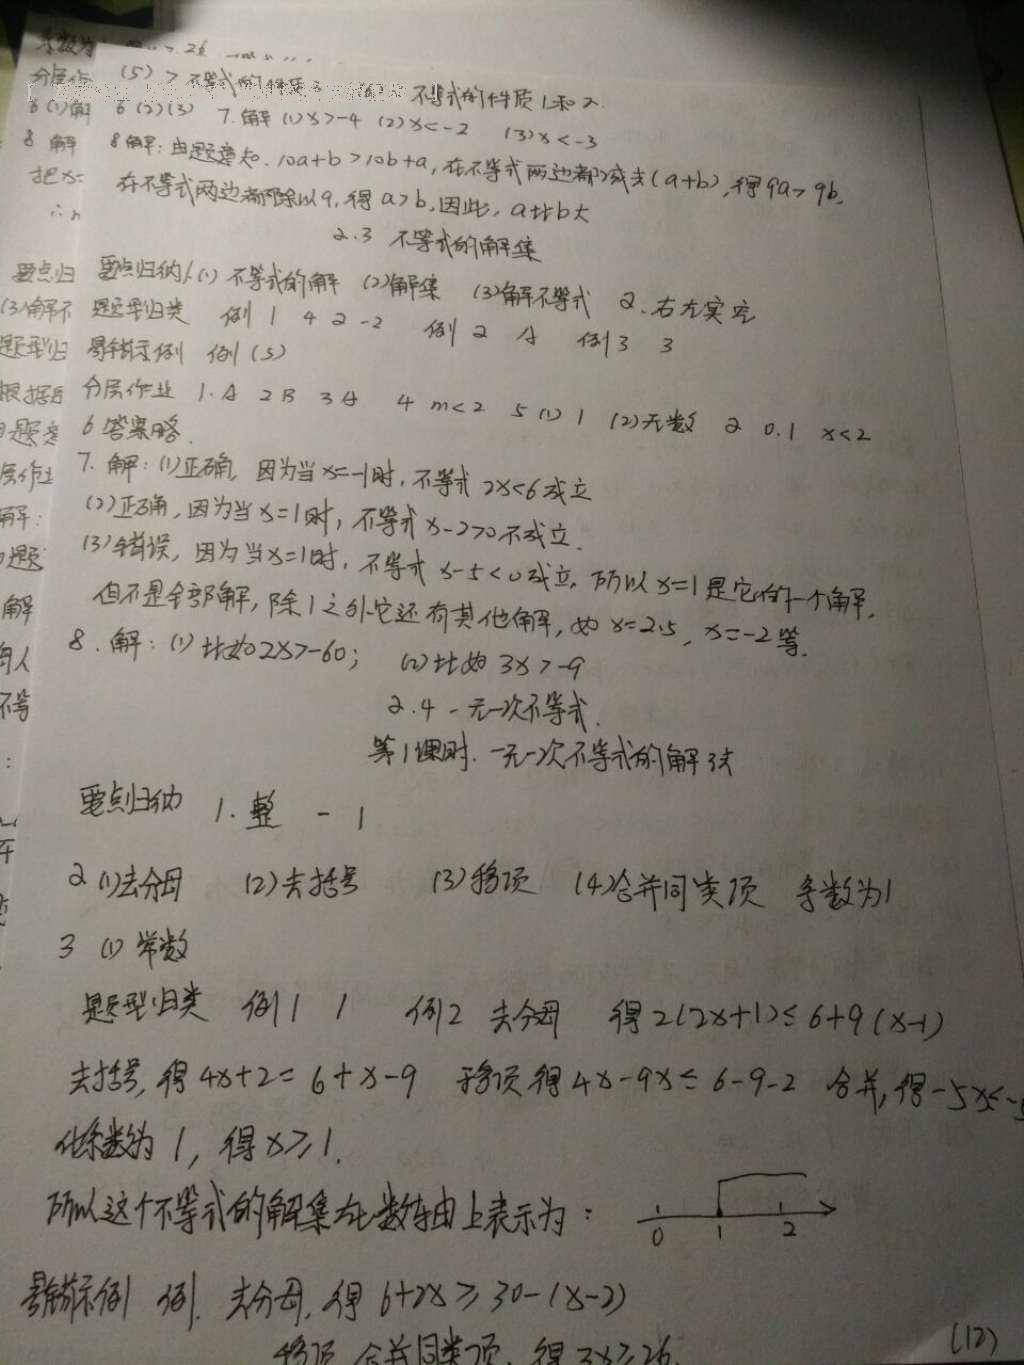 (5) > 不等式的性质3 不等式的性质1和2.
6 (2)(3) 7.解 (1)x>-4 (2)x<-2 (3)x<-3
8解：由题意知.10a+b>10b+a,在不等式两边都减去(a+b),得9a>9b,
在不等式两边都除以9,得a>b,因此,a比b大
2.3 不等式的解集
要点归纳1.(1)不等式的解 (2)解集 (3)解不等式 2.右左实空
题型归类 例1 4 2 -2 例2 A 例3 3
易错示例 例(5)
分层作业 1.A 2B 3A 4 m<2 5(1)1 (2)无数 2 0.1 x<2
6答案略.
7.解：(1)正确,因为当x=-1时,不等式2x<6成立
(2)正确,因为当x=1时,不等式x-2>0不成立.
(3)错误,因为当x=1时,不等式x-5<0成立,所以x=1是它的一个解,
但不是全部解,除1之外它还有其他解,如x=2.5,x=-2等.
8.解：(1)比如2x>-60; (2)比如3x>-9
2.4 一元一次不等式.
第1课时.一元一次不等式的解法
要点归纳 1.整 一 1
2(1)去分母 (2)去括号 (3)移项 (4)合并同类项 系数为1
3 (1)常数
题型归类 例1 1 例2 去分母 得2(2x+1)≤6+9(x-1)
去括号,得4x+2= 6+x-9 移项得4x-9x≤6-9-2 合并,得-5x≤-5
化系数为1,得x≥1.
所以这个不等式的解集在数轴上表示为：
0 1 2
易错示例 例.去分母,得6+2x≥30-(x-2)
移项,合并同类项,得3x≥26.
(12)